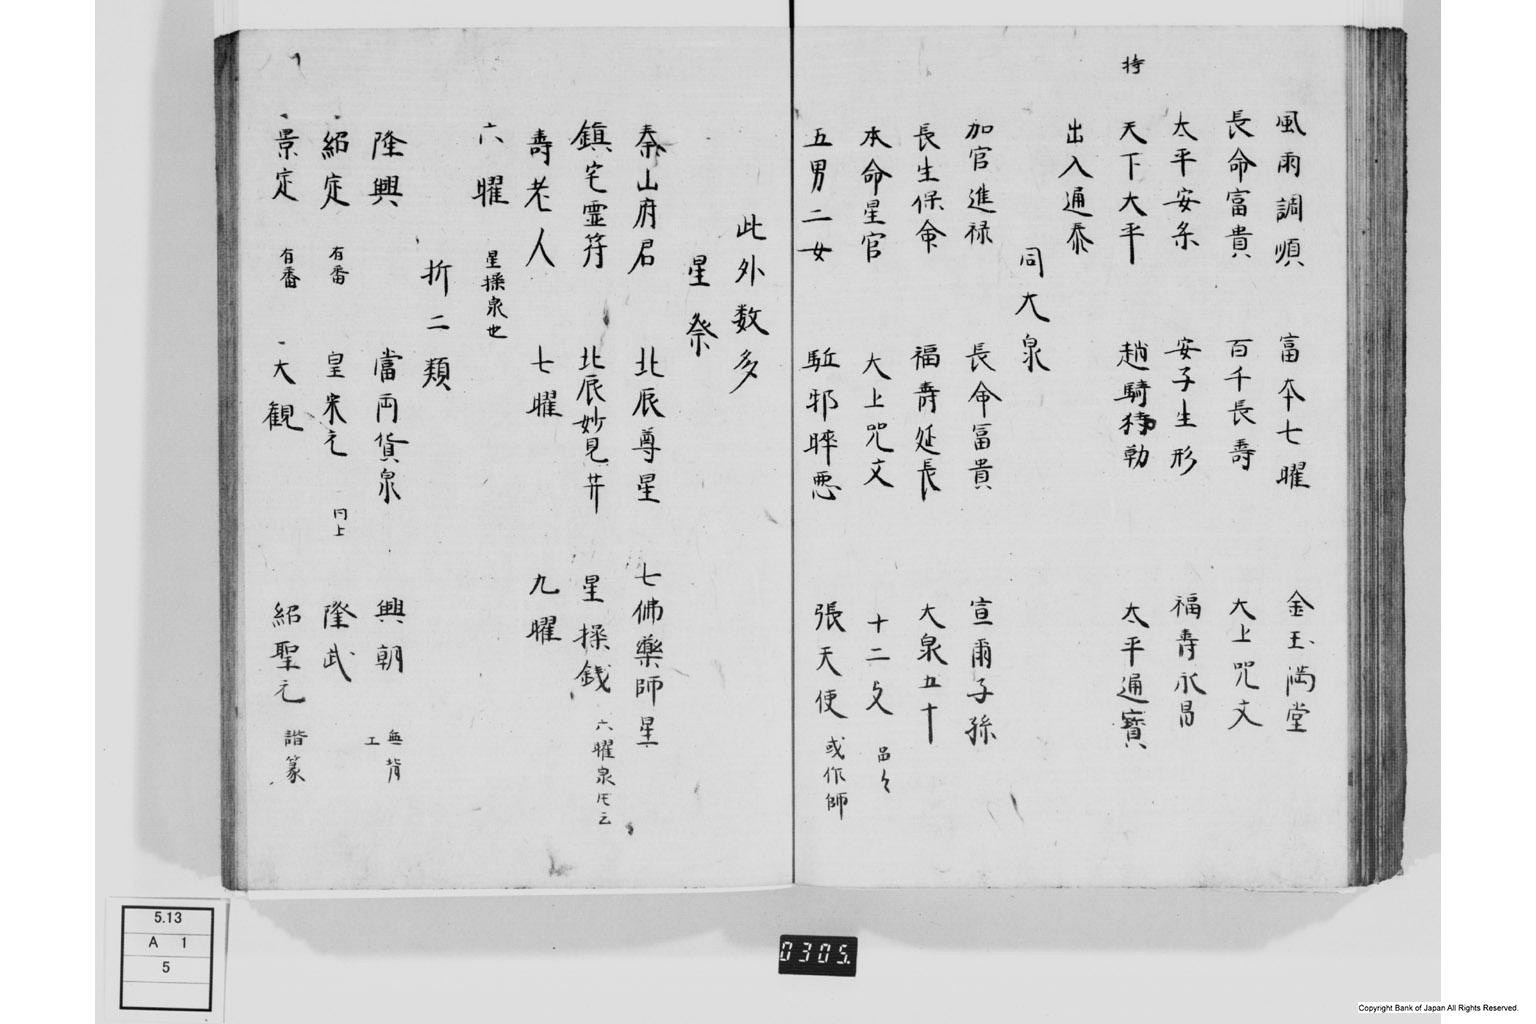 風雨調順 富本七曜 金玉満堂
長命富貴 百千長壽 大上咒文
太平安楽 安子生形 福壽永昌
持
天下大平 趙騎特勒 太平通寳
出入通泰
同大泉
加官進禄 長命冨貴 宣爾子孫
長生保命 福壽延長 大泉五十
本命星官 大上咒文 十二支 品々
五男二女 駈邪䁨悪 張天使 或作師
此外数多
星祭
泰山府君 北辰尊星 七佛藥師星
鎮宅霊符 北辰妙見井 星操銭 六曜泉氏云
壽老人 七曜 九曜
六曜 星操泉也
折二類
隆興 當両貨泉 興朝 無背 工
紹定 有番 皇宋元 同上 隆武
景定 有番 大観 紹聖元 諧篆
5.13
A 1
5
0305.
Copyright Bank of Japan All Rights Reserved.